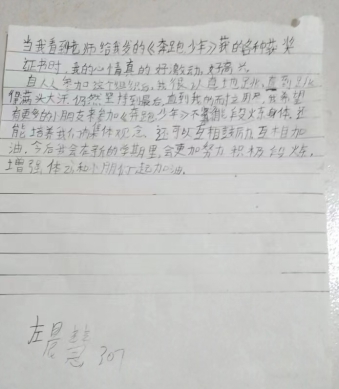 当我看到老师给我乡的《奔跑少年》获的各种获奖
证书时，我的心情真的好激动，好高兴。
自人人参加这个组织后，我很认真也，直到
满头大汗，仍然坚持到最后，直到我。我希望
有更多的小朋友来参加《奔跑少年》不能锻炼身体，还
能培养我们的集体观念，还可以互相鼓励互相加
油，今后我会在新的学期里，会更加努力积极锻炼，
增强体和小朋们一起加油。
左晨慧 307